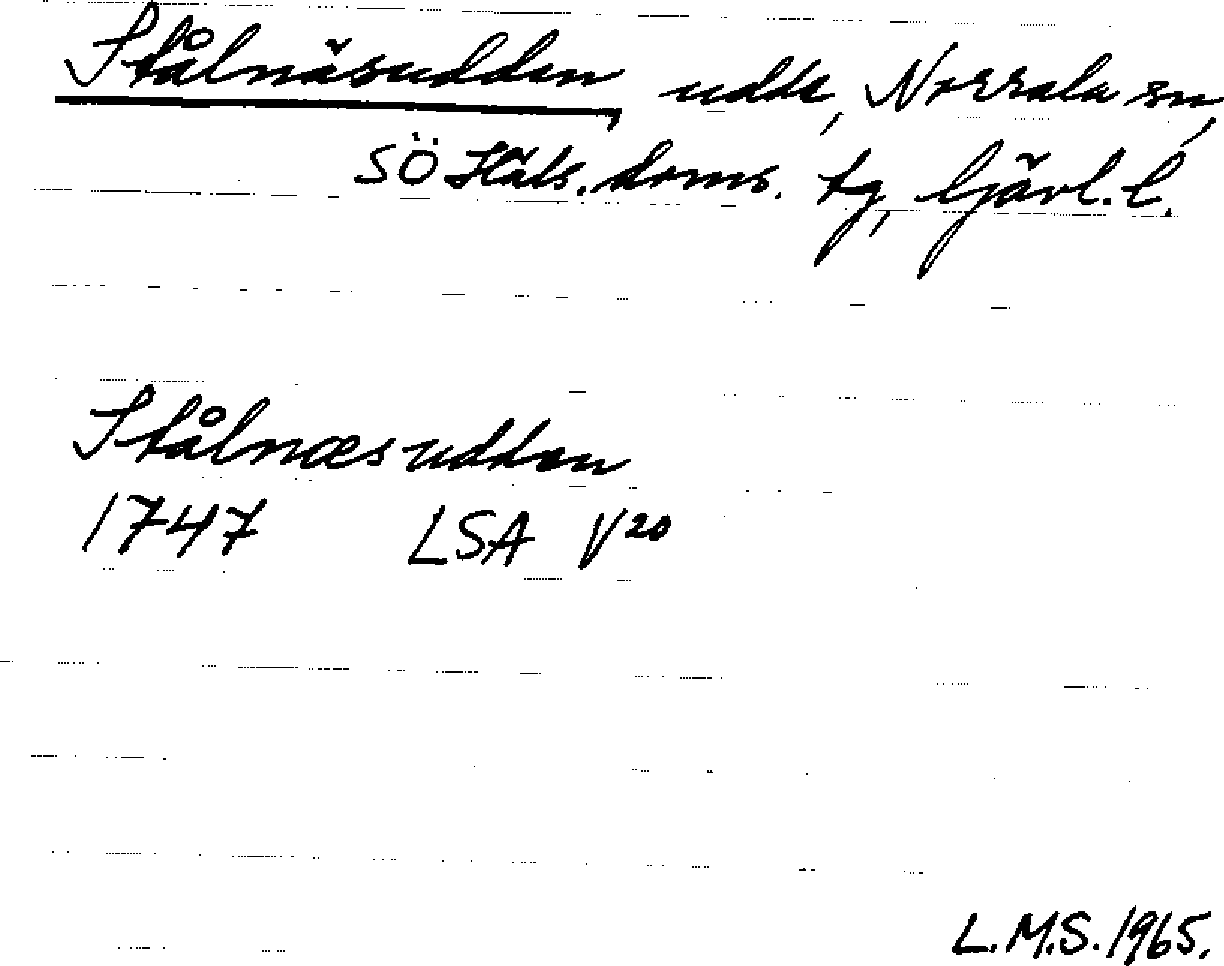 Stålnäsudden, udde, Norrala sn,
SÖ Häls. doms. tg, Gävl. l.
Stålnæsudden
1747 LSA V20
L.M.S. 1965.